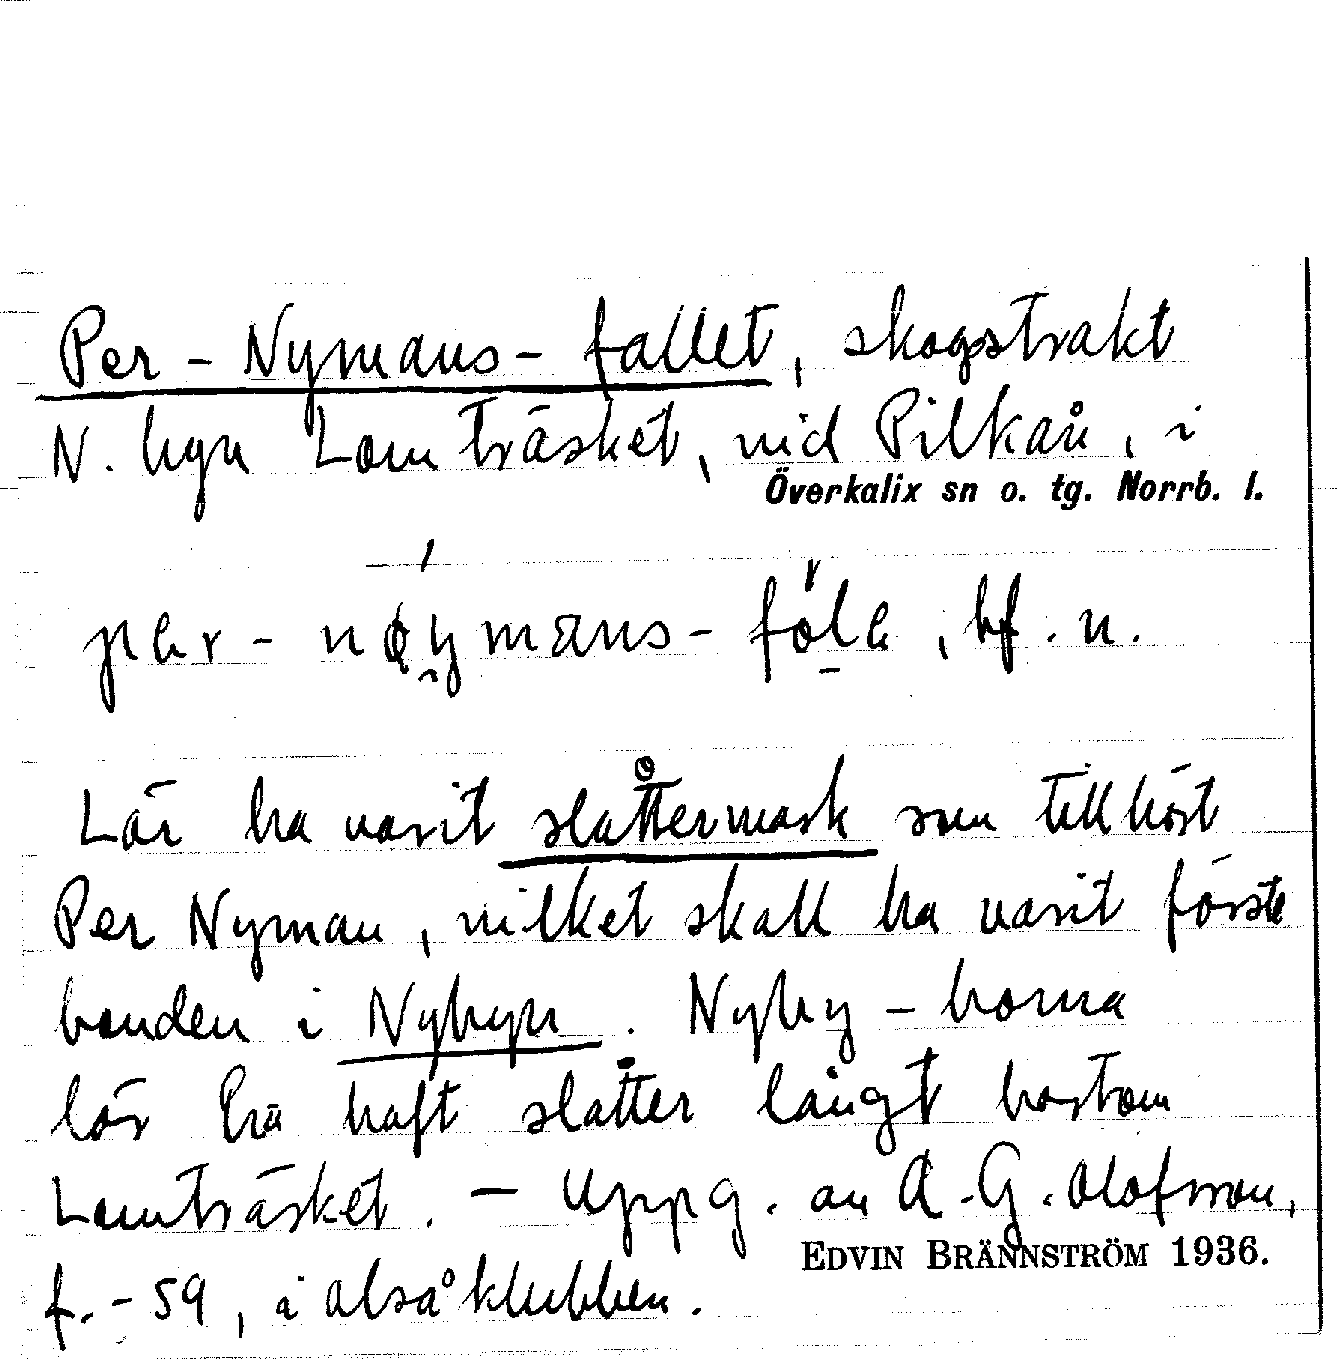 Per-Nymans-fallet, skogstrakt
N. byn Lomträsket, vid Pilkån, i
Överkalix sn o. tg. Norrb. l.
bf. n.
Lär ha varit slåttermark som tillhört
Per Nyman, vilket skall ha varit förste
bonden i Nybyn. Nyby-borna
lär ha haft slåtter långt bortom
Lomträsket. — Uppg. av A.G. Olofsson,
EDVIN BRÄNNSTRÖM 1936.
f. -59, i Alsåklubben.